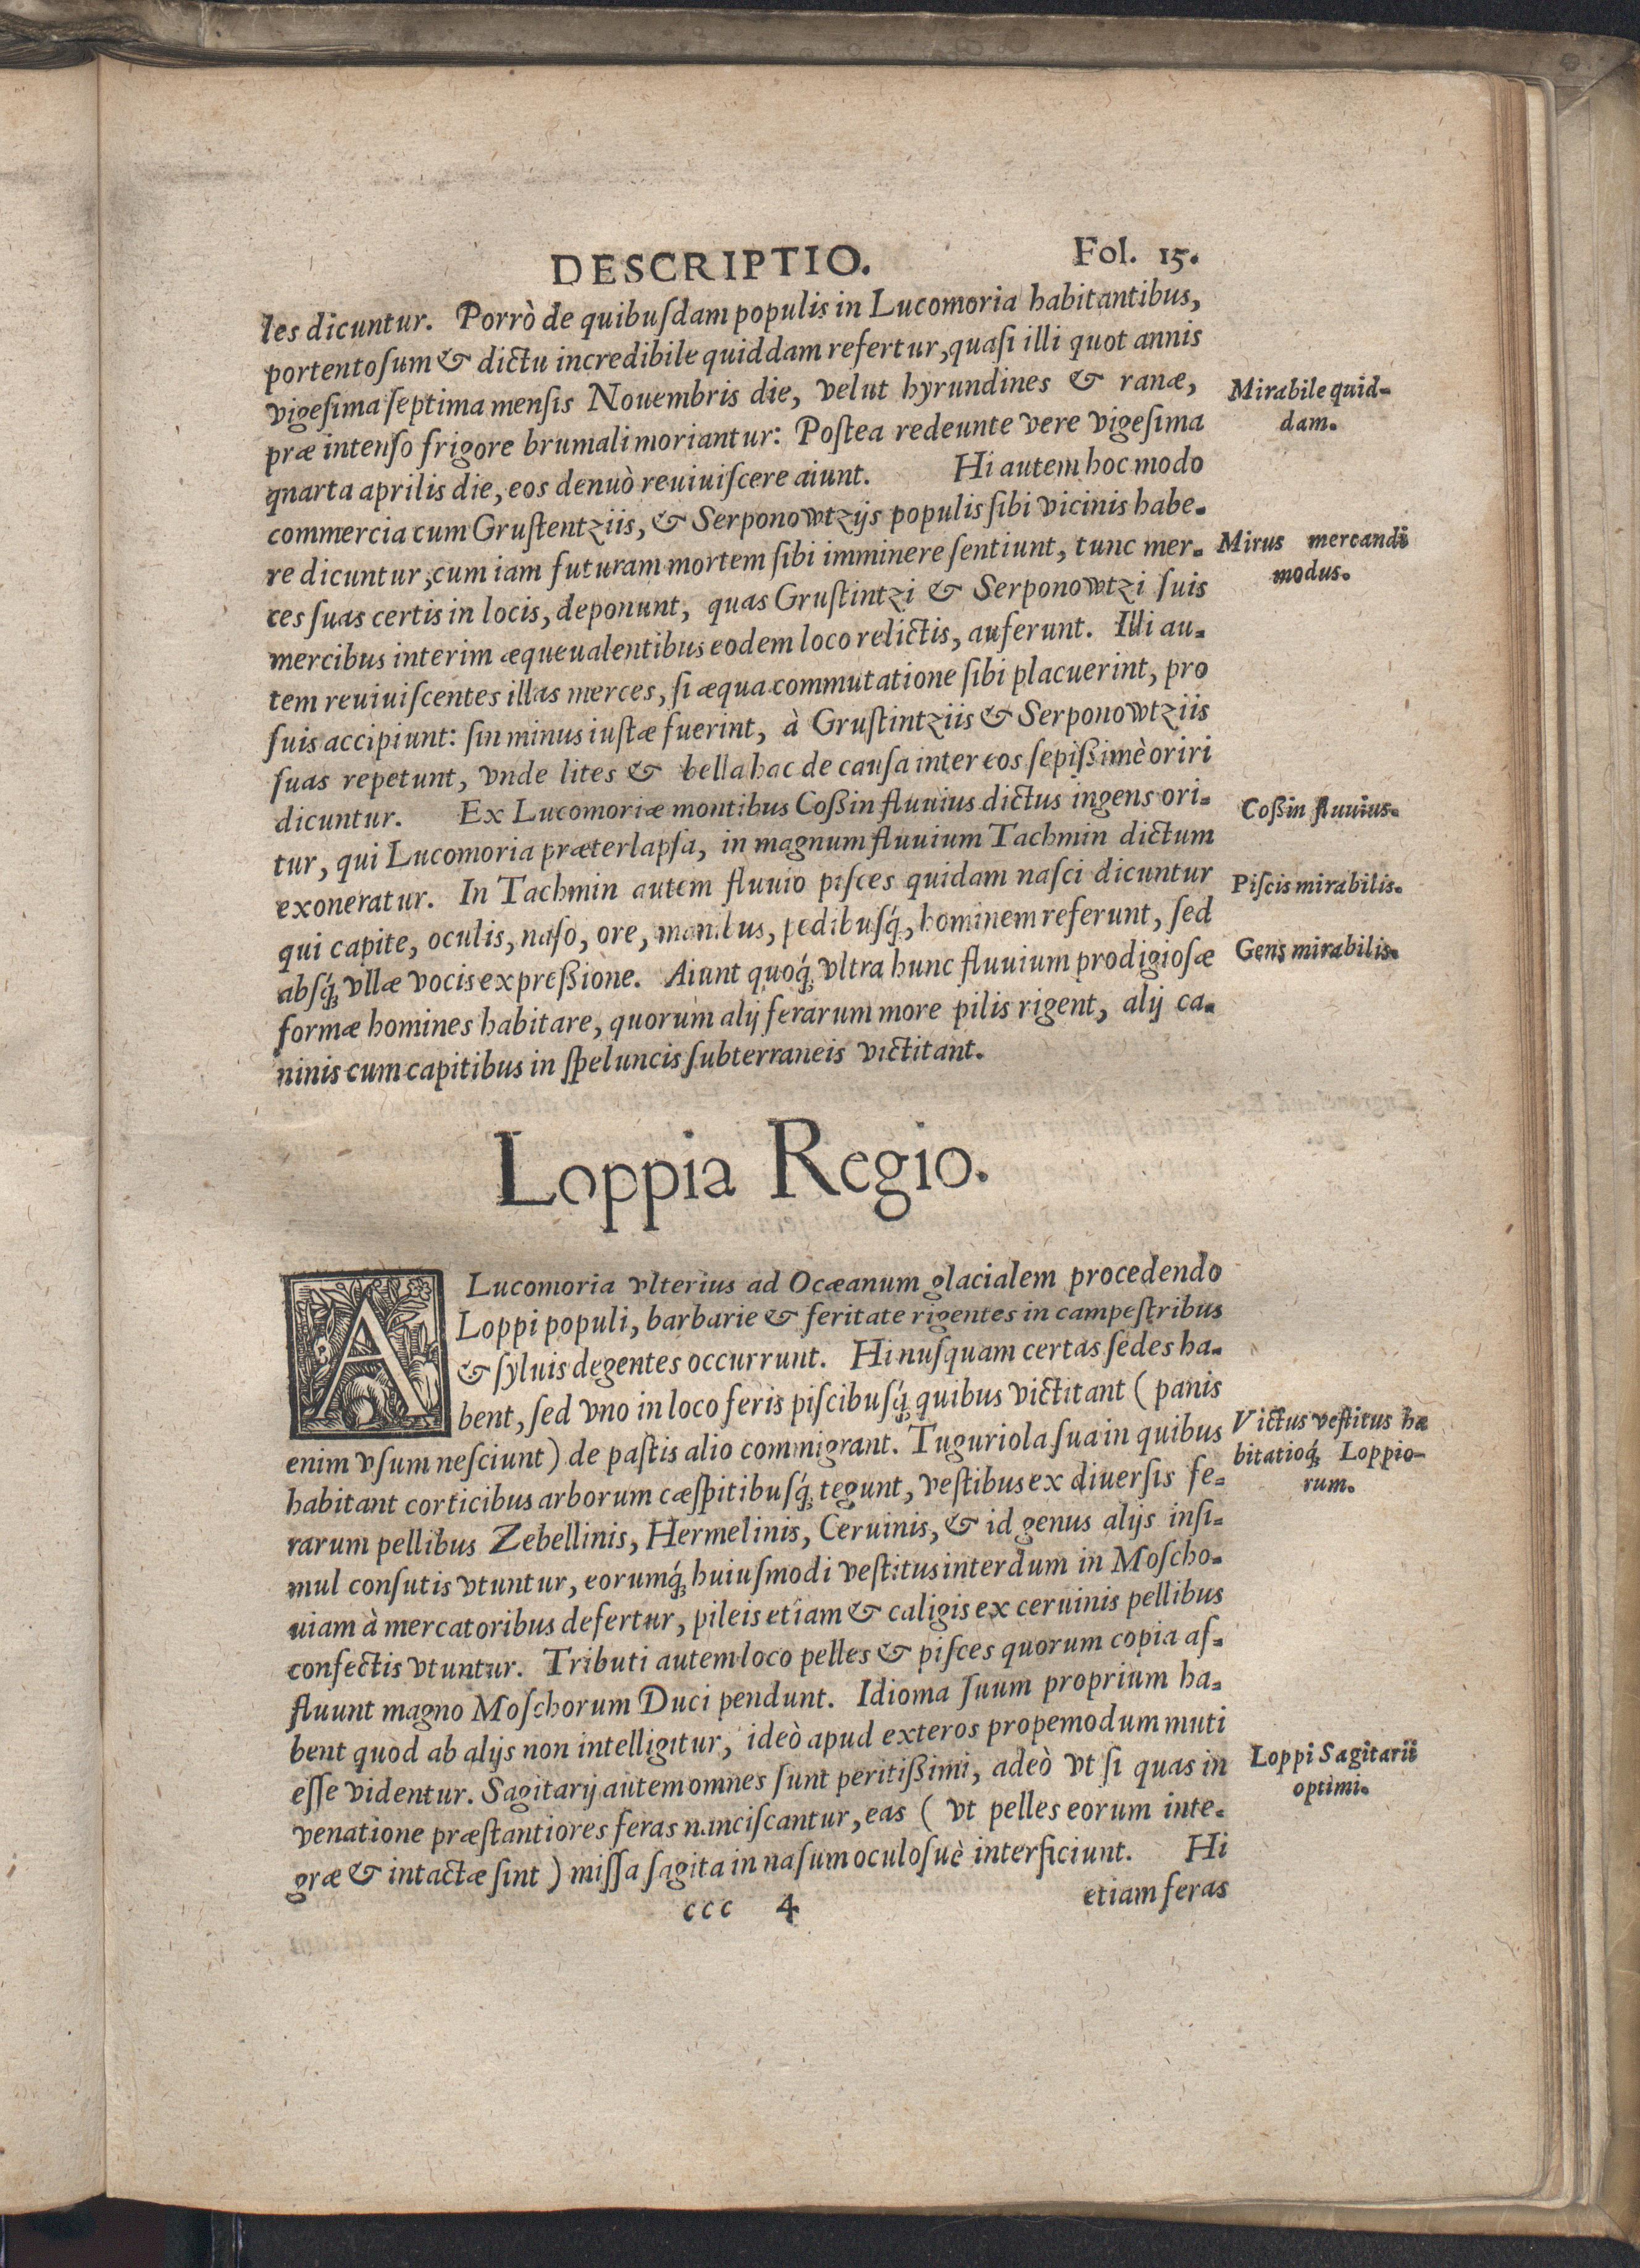 DESCRIPTIO. Fol. 15.
les dicuntur. Porrò de quibuſdam populis in Lucomoria habitantibus,
portentoſum & dictu incredibile quiddam refertur, quaſi illi quot annis
vigeſima ſeptima menſis Nouembris die, velut hyrundines & ranæ,
Mirabile quid-
dam.
præ intenſo frigore brumali moriantur: Poſtea redeunte vere vigeſima
qnarta aprilis die, eos denuò reuiuiſcere aiunt. Hi autem hoc modo
commercia cum Gruſtentziis, & Serponowtzijs populis ſibi vicinis habe-
re dicuntur, cum iam futuram mortem ſibi imminere ſentiunt, tunc mer-
Mirus mercandi
modus.
ces ſuas certis in locis, deponunt, quas Gruſtintzi & Serponowtzi ſuis
mercibus interim æqueualentibus eodem loco relictis, auferunt. Illi au-
tem reuiuiſcentes illas merces, ſi æqua commutatione ſibi placuerint, pro
ſuis accipiunt: ſin minus iuſtæ fuerint, à Gruſtintziis & Serponowtziis
ſuas repetunt, vnde lites & bella hac de cauſa inter eos ſepißimè oriri
dicuntur. Ex Lucomoriæ montibus Coßin fluuius dictus ingens ori-
Coßin fluuius.
tur, qui Lucomoria præterlapſa, in magnum fluuium Tachmin dictum
exoneratur. In Tachmin autem fluuio piſces quidam naſci dicuntur
Piſcis mirabilis.
qui capite, oculis, naſo, ore, manibus, pedibuſq́;, hominem referunt, ſed
abſq́; vllæ vocis expreßione. Aiunt quoq́; vltra hunc fluuium prodigioſæ
Gens mirabilis.
formæ homines habitare, quorum alij ferarum more pilis rigent, alij ca-
ninis cum capitibus in ſpeluncis ſubterraneis victitant.
Loppia Regio.
A Lucomoria vlterius ad Ocæanum glacialem procedendo
Loppi populi, barbarie & feritate rigentes in campeſtribus
& ſyluis degentes occurrunt. Hi nuſquam certas ſedes ha-
bent, ſed vno in loco feris piſcibuſq́; quibus victitant ( panis
enim vſum neſciunt) de paſtis alio commigrant. Tuguriola ſua in quibus
Victus veſtitus hæ
bitatioq́; Loppio-
rum.
habitant corticibus arborum cæſpitibuſq́; tegunt, veſtibus ex diuerſis fe-
rarum pellibus Zebellinis, Hermelinis, Ceruinis, & id genus alijs inſi-
mul conſutis vtuntur, eorumq́; huiuſmodi veſtitus interdum in Moſcho-
uiam à mercatoribus defertur, pileis etiam & caligis ex ceruinis pellibus
confectis vtuntur. Tributi autem loco pelles & piſces quorum copia af-
fluunt magno Moſchorum Duci pendunt. Idioma ſuum proprium ha-
bent quod ab alijs non intelligitur, ideò apud exteros propemodum muti
eſſe videntur. Sagitarij autem omnes ſunt peritißimi, adeò vt ſi quas in
Loppi Sagitarii
optimi.
venatione præſtantiores feras nanciſcantur, eas ( vt pelles eorum inte-
græ & intactæ ſint ) miſſa ſagita in naſum oculoſuè interficiunt. Hi
ccc 4 etiam feras